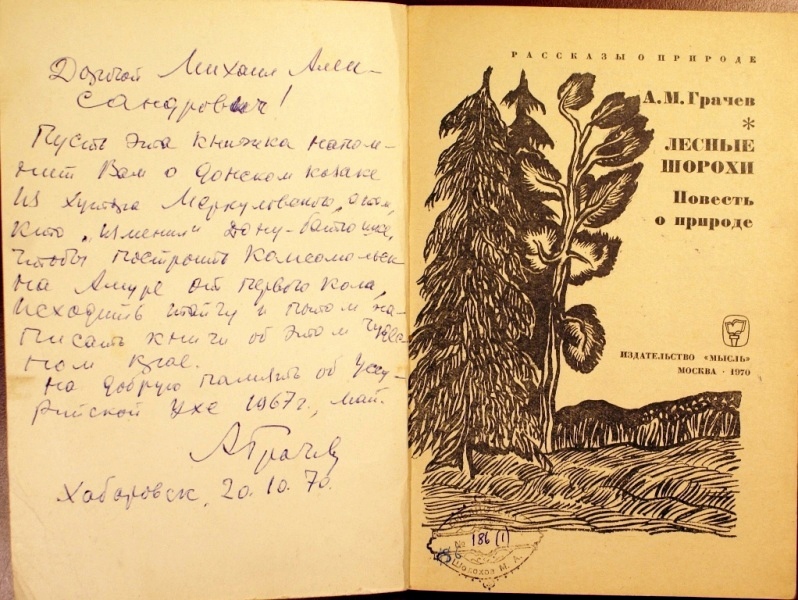 Дорогой Михаил Алек-
сандрович!
Пусть эта книжка напом-
нит Вам о донском казаке
из хутора Меркуловского, о том,
кто „изменил" Дону-батюшке,
чтобы построить Комсомольск
на Амуре от первого кола,
исходить тайгу и потом на-
писать книги об этом чудес
ном крае.
На добрую память об Уссу-
рийской Ухе 1967г., май.
АГрачев
Хабаровск, 20.10.70.
РАССКАЗЫ О ПРИРОДЕ
А. М. Грачев
*
ЛЕСНЫЕ
ШОРОХИ
Повесть
о природе
ИЗДАТЕЛЬСТВО «МЫСЛЬ»
МОСКВА · 1970
№ 186 (1)
Шолохов М. А.